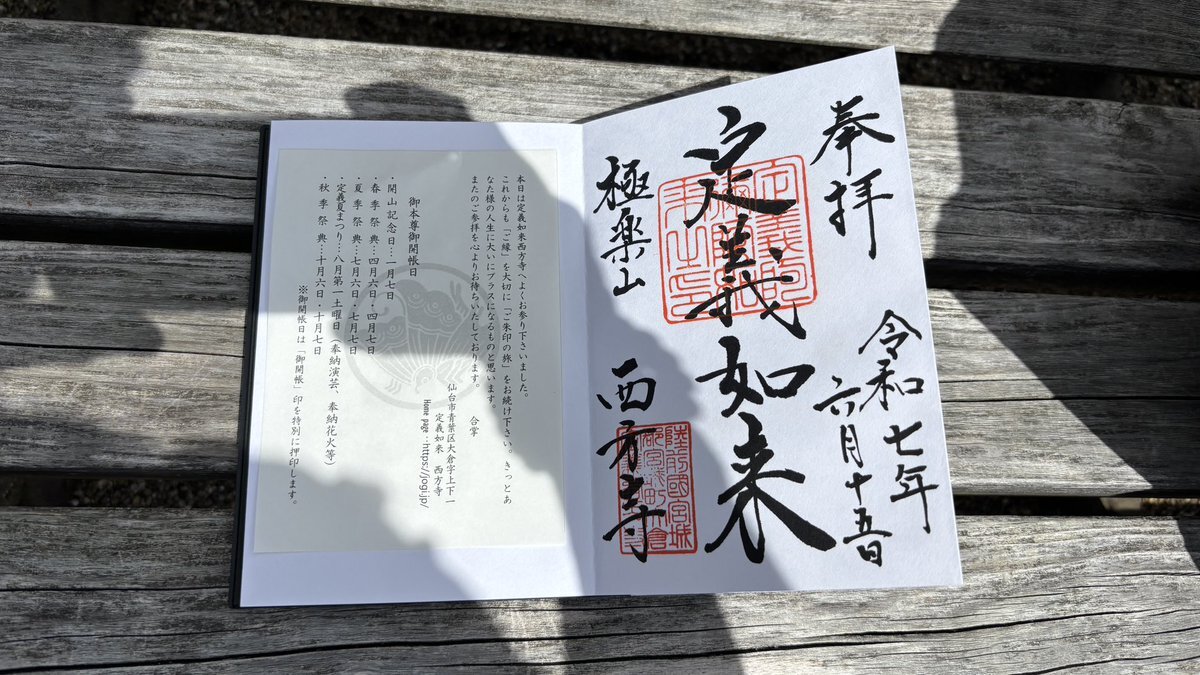 奉拝
令和七年
六月十五日
定義如来
極楽山 西方寺
陸前國宮城
本日は定義如来西方寺へよくお参り下さいました。
これからも「ご縁」を大切に「ご朱印の旅」をお続け下さい。きっとあ
なた様の人生に大いにプラスになるものと思います。
またのご参拝を心よりお待ちいたしております。
合掌
仙台市青葉区大倉字上下一
定義如来 西方寺
Home page：https://jogi.jp/
御本尊御開帳日
・開山記念日…一月七日
・春季祭典…四月六日・四月七日
・夏季祭典…七月六日・七月七日
・定義夏まつり…八月第一土曜日（奉納演芸、奉納花火等）
・秋季祭典…十月六日・十月七日
※御開帳日は「御開帳」印を特別に押印します。